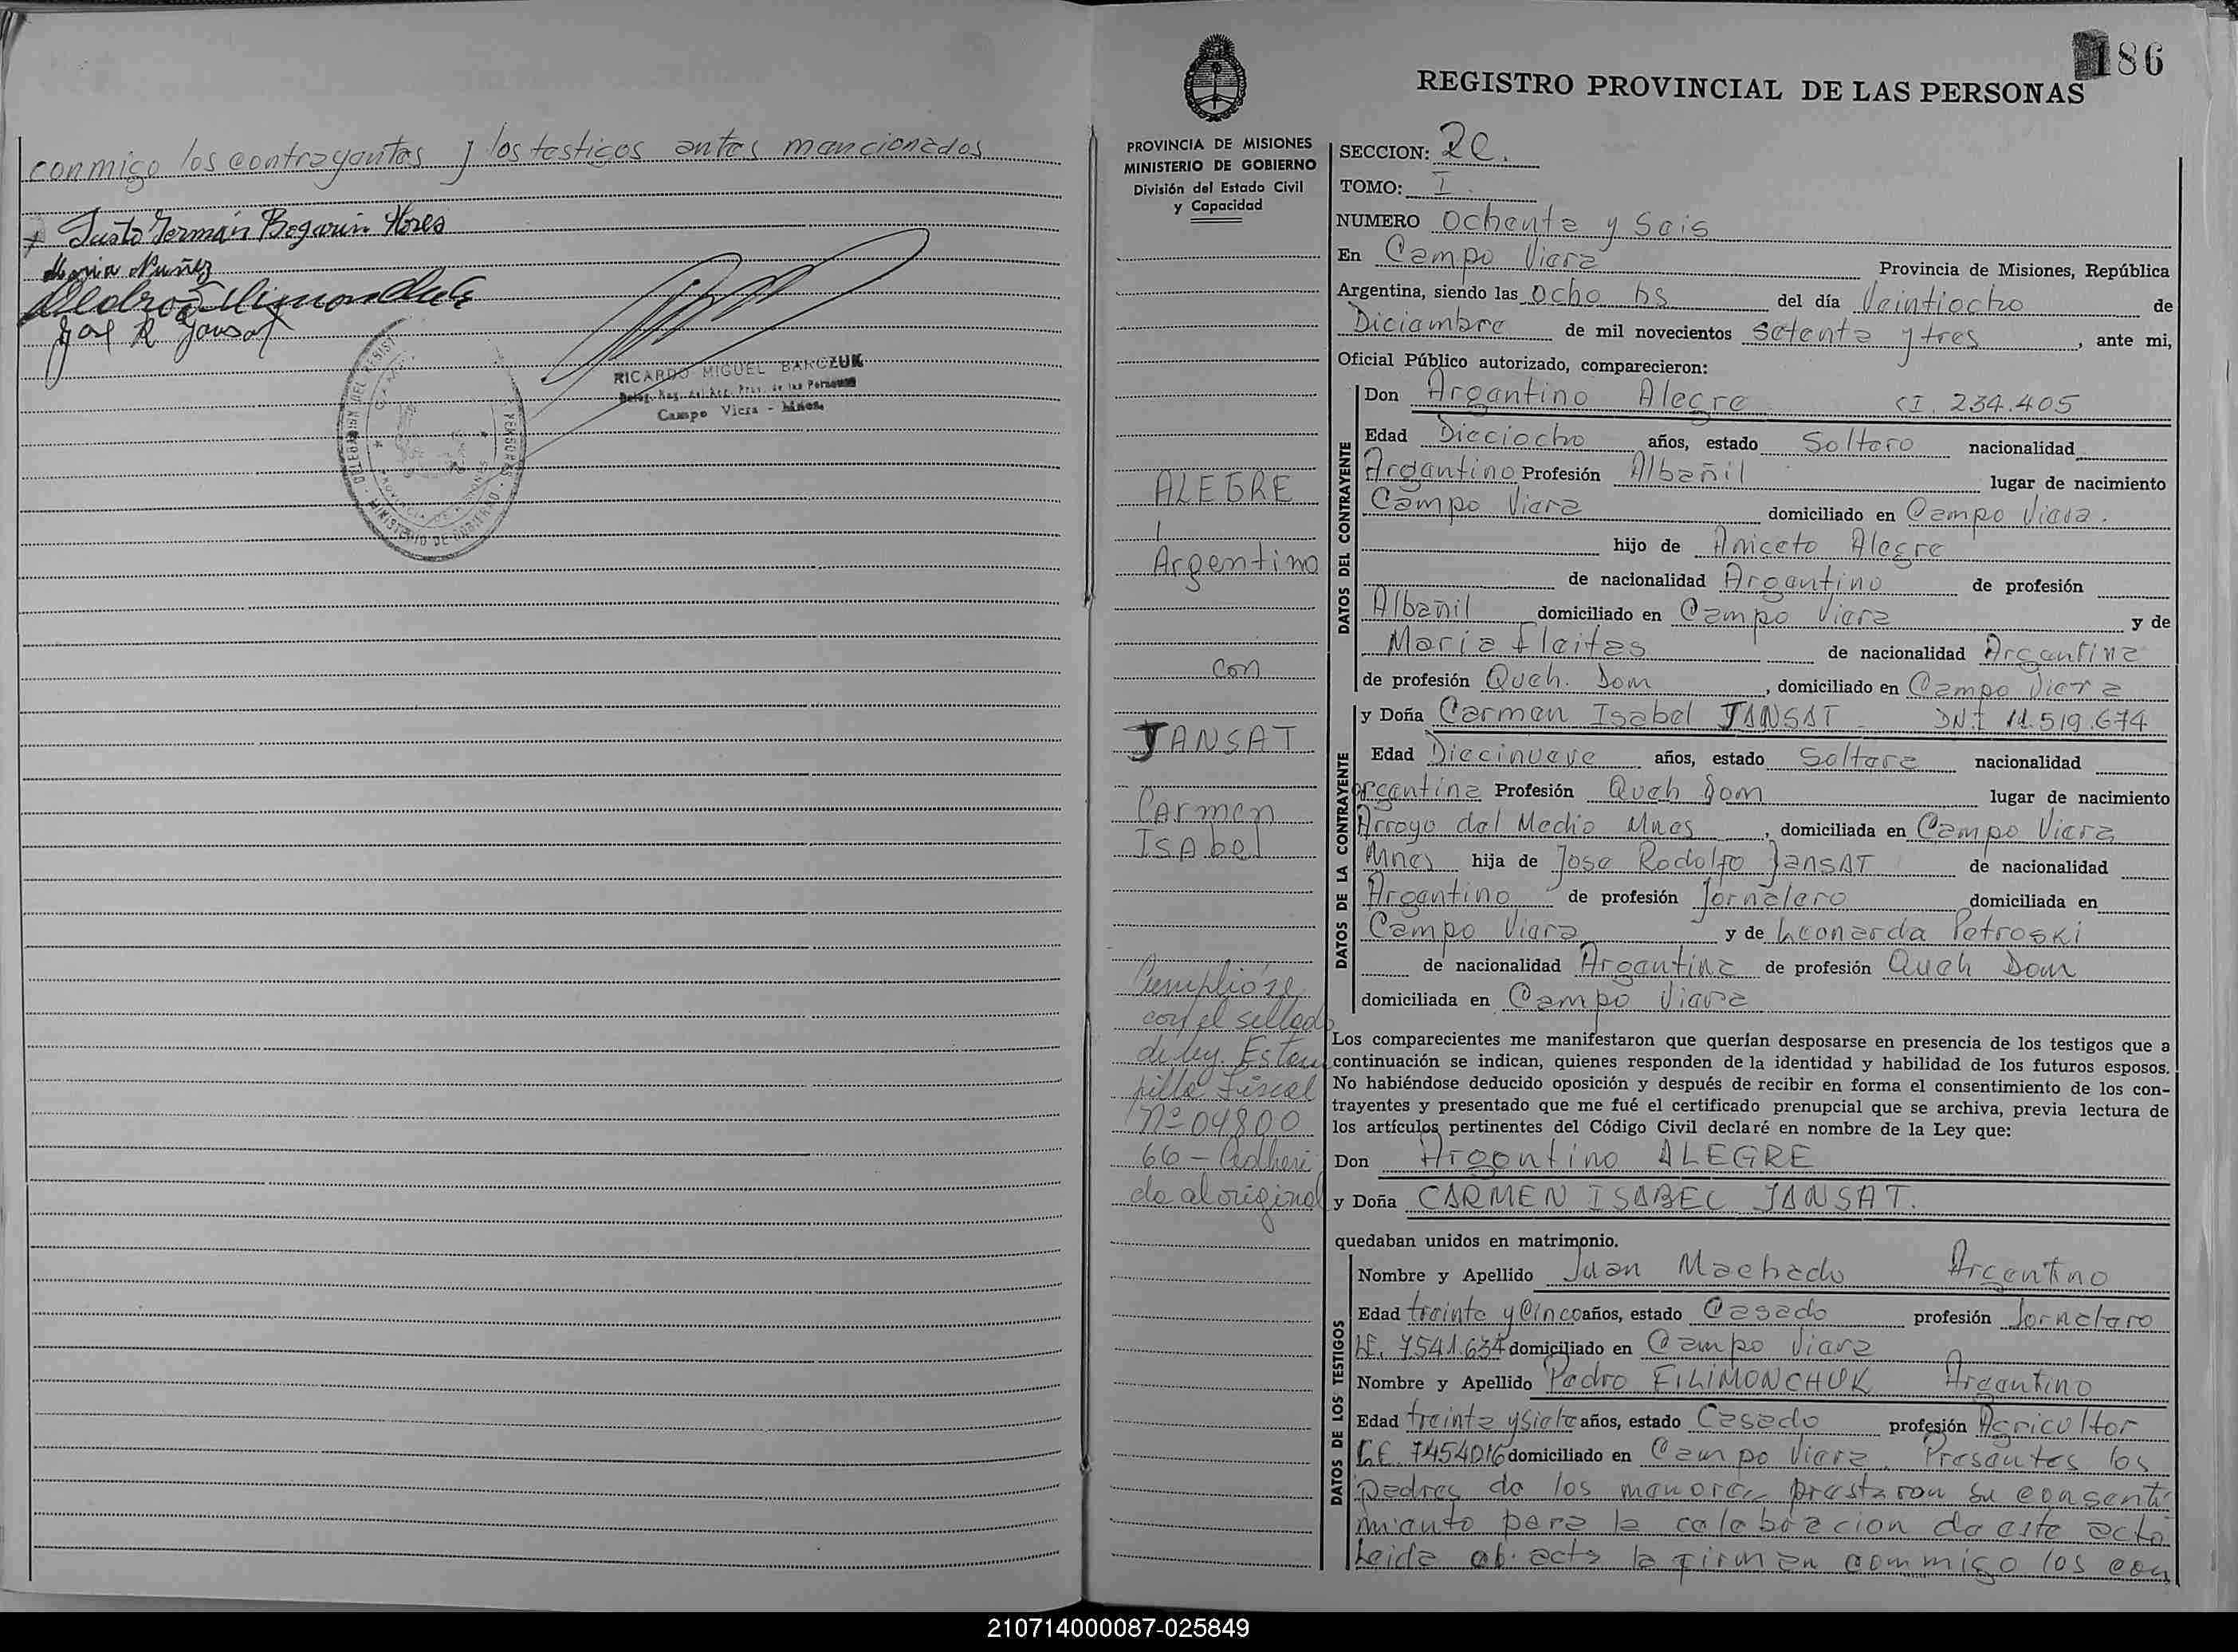 conmigo los contrayentes y los testigos antes mencionados
+ Justo Germán Begarin Flores
Maria Nuñez
Pedro Filimonchuk
José R Jansat
RICARDO MIGUEL BARCZUK
Deleg. Reg. del Reg. Prov. de las Personas
Campo Viera - Mnes.
MINISTERIO DE GOBIERNO
186
REGISTRO PROVINCIAL DE LAS PERSONAS
PROVINCIA DE MISIONES
MINISTERIO DE GOBIERNO
División del Estado Civil
y Capacidad
ALEGRE
Argentino
con
JANSAT
Carmen
ISAbel
Cumplióse
con el sellado
de ley. Estam
pilla Fiscal
Nº 04800
66 - Adheri
da al original
SECCION: 2C.
TOMO: I
NUMERO Ochenta y Seis
En Campo Viera Provincia de Misiones, República
Argentina, siendo las Ocho hs del día Veintiocho de
Diciembre de mil novecientos setenta y tres, ante mi,
Oficial Público autorizado, comparecieron:
DATOS DEL CONTRAYENTE
Don Argentino Alegre CI. 234.405
Edad Dieciocho años, estado Soltero nacionalidad
Argentino Profesión Albañil lugar de nacimiento
Campo Viera domiciliado en Campo Viera.
hijo de Aniceto Alegre
de nacionalidad Argentino de profesión
Albañil domiciliado en Campo Viera y de
Maria Fleitas de nacionalidad Argentina
de profesión Queh. Dom, domiciliado en Campo Viera
DATOS DE LA CONTRAYENTE
y Doña Carmen Isabel JANSAT DNI 11.519.674
Edad Diecinueve años, estado Soltera nacionalidad
argentina Profesión Queh Dom lugar de nacimiento
Arroyo del Medio Mnes, domiciliada en Campo Viera
Mnes hija de Jose Rodolfo JanSAT de nacionalidad
Argentino de profesión Jornalero domiciliada en
Campo Viera y de Leonarda Petroski
de nacionalidad Argentina de profesión Queh Dom
domiciliada en Campo Viera
Los comparecientes me manifestaron que querían desposarse en presencia de los testigos que a
continuación se indican, quienes responden de la identidad y habilidad de los futuros esposos.
No habiéndose deducido oposición y después de recibir en forma el consentimiento de los con-
trayentes y presentado que me fué el certificado prenupcial que se archiva, previa lectura de
los artículos pertinentes del Código Civil declaré en nombre de la Ley que:
Don Argentino ALEGRE
y Doña CARMEN ISABEL JANSAT.
quedaban unidos en matrimonio.
DATOS DE LOS TESTIGOS
Nombre y Apellido Juan Machado Argentino
Edad treinta y Cinco años, estado Casado profesión Jornalero
LE. 7541.634 domiciliado en Campo Viera
Nombre y Apellido Pedro FILIMONCHUK Argentino
Edad treinta y siete años, estado Casado profesión Agricultor
LE. 7454016 domiciliado en Campo Viera. Presentes los
padres de los menores prestaron su consenti
miento para la celebracion de este acto
Leida el acta la firman conmigo los con
210714000087-025849